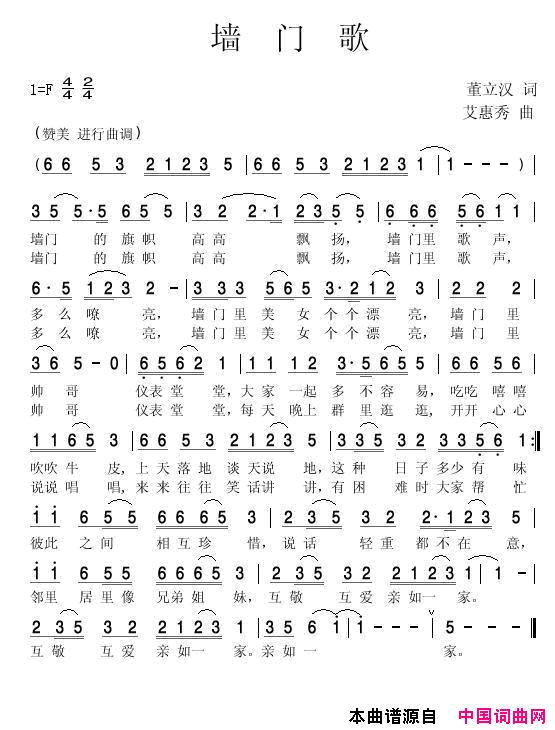 墙 门 歌
1=F 4/4 2/4
董立汉 词
艾惠秀 曲
(赞美 进行曲调)
(66 53 21235 | 66 53 21231 | 1 - - -) |
35 5·5 65 5 | 32 2·1 235 5 | 6 66 56 11 |
墙门 的旗帜 高高 飘扬, 墙门里 歌声,
墙门 的旗帜 高高 飘扬, 墙门里 歌声,
6·5 123 2 - | 332 565 3·212 2 | 22 2
多么嘹 亮, 墙门里 美女 个个漂 亮, 墙门 里
多么嘹 亮, 墙门里 美女 个个漂 亮, 墙门 里
36 5 - 0 | 6562 1 | 11 12 3·565 5 | 66 56
帅哥 仪表堂 堂, 大家 一起 多不容 易, 吃吃 嘻嘻
帅哥 仪表堂 堂, 每天 晚上 群里逛 逛, 开开 心心
1165 3 | 22 55 6653 5 | 1 335 32 3356 1 :||
吹吹牛 皮, 上天落地 谈天说 地, 这种 日子多少有 味
说说唱 唱, 来来往往 笑话讲 讲, 有困 难时大家帮 忙
11 6 55 6665 3 | 235 323 2·123 5 |
彼此 之间 相互珍 惜, 说话 轻重 都不在 意,
11 6 55 6665 3 | 235 32 31231 | 1 - |
邻里 居里像 兄弟姐 妹, 互敬 互爱亲如一 家。
235 32 31235 | 335 61 | 1 - - - | 5 - - - ||
互敬 互爱 亲如一 家。亲如一 家。
本曲谱源自 中国词曲网